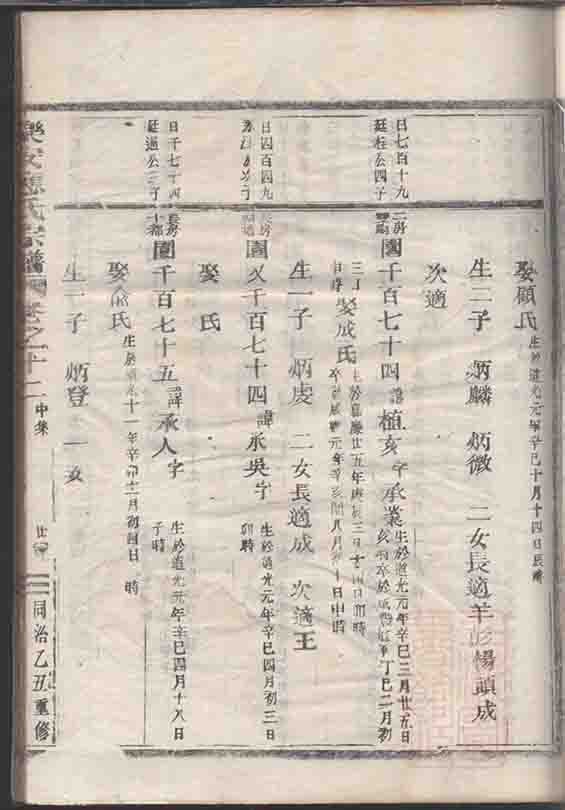 娶顧氏 生於道光元年辛巳十月十四日辰時
生二子 炳麟 炳微 二女長適羊彭橋頭成
次適
日七百十九
廷柱公四子
二房
園千百七十四諱植亥字承業 生於道光元年辛巳三月廿五日
亥時卒於咸豐 丁巳二月初
三日
日時 娶成氏 生於嘉慶廿五年庚辰三月 日卯時
卒於咸豐元年辛亥 八月 十日申時
生一子 炳虔 二女長適成 次適王
日四百四九
次子
長房
園又千百七十四諱承吳字 生於道光元年辛巳四月初三日
卯時
娶 氏
日千七十四
廷 公三子
長房
十都
園千百七十五諱承人字 生於道光元年辛巳四月十八日
子時
娶 氏 生於道光十一年辛卯十二月初四日 時
生一子 炳登 一女
樂安 氏宗譜 卷之十二 中集 廿 同治乙丑重修